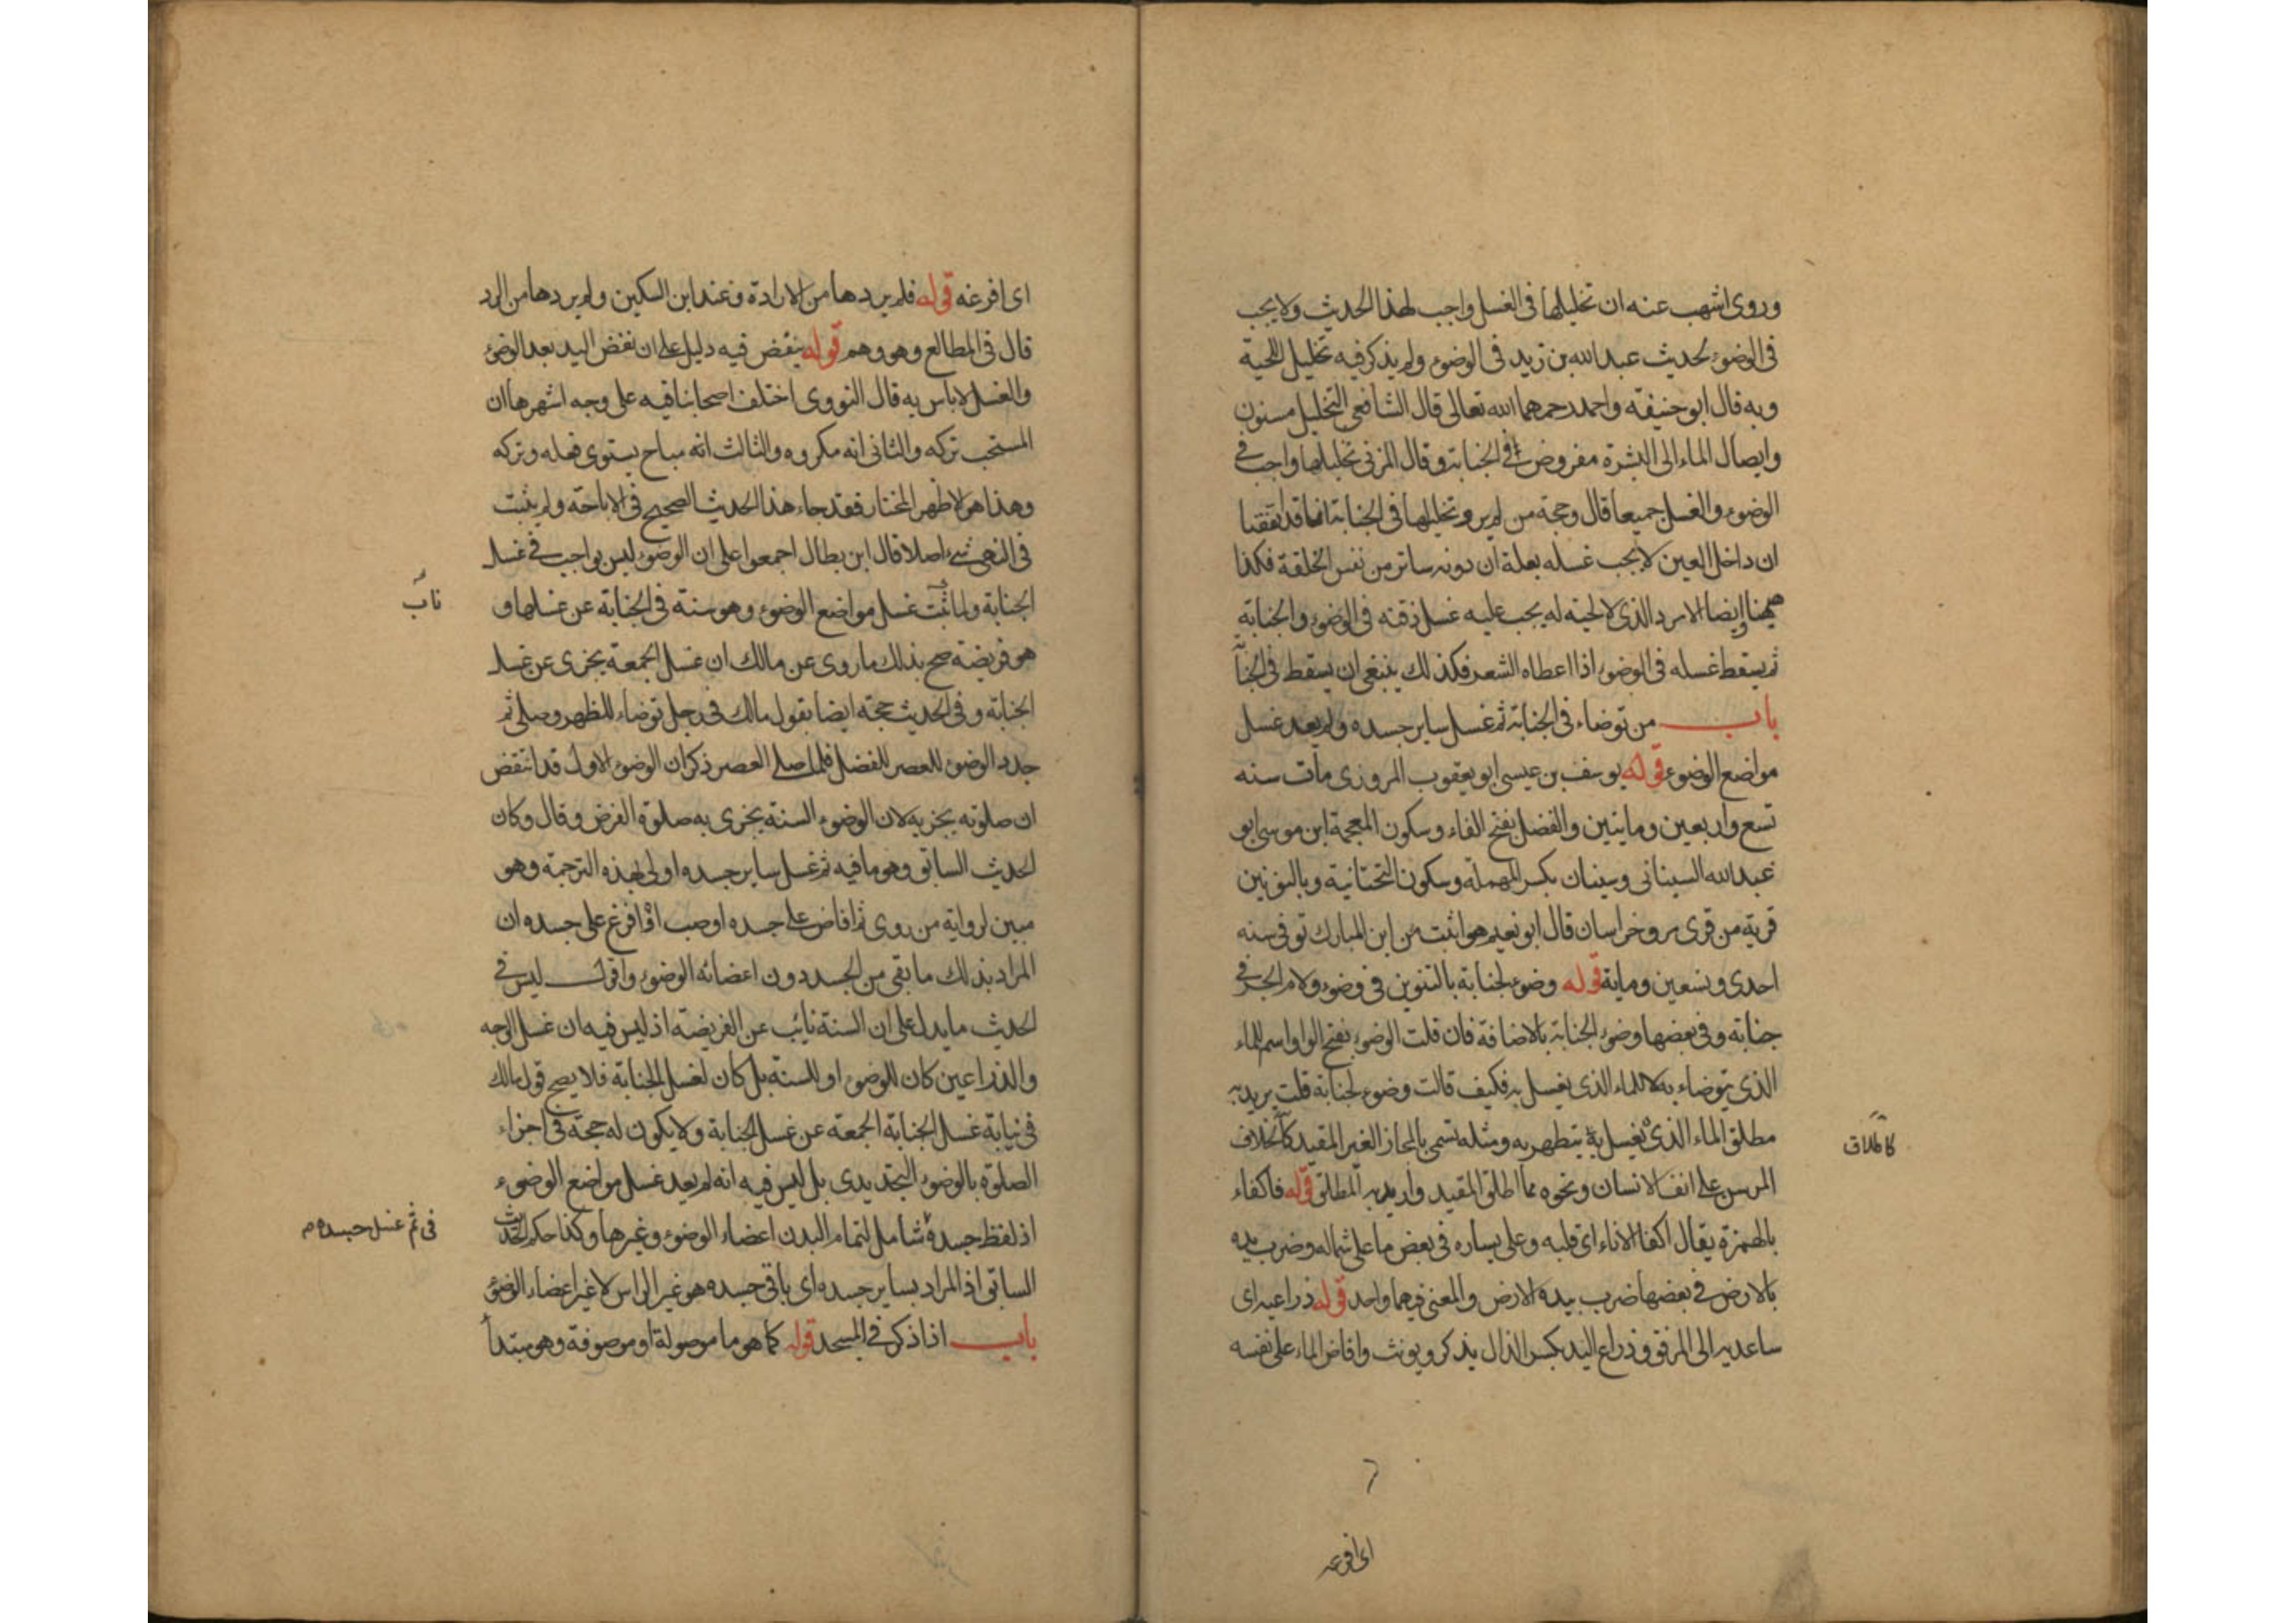 وروى اشهب عنه ان تخليلها فى الغسل واجب لهذا الحديث ولا يجب
فى الوضوء لحديث عبد الله بن زيد فى الوضوء ولم يذكر فيه تخليل اللحية
وبه قال ابو حنيفة واحمد رحمهما الله تعالى قال الشافعى التخليل مسنون
وايصال الماء الى البشرة مفروض فى الجنابة وقال المزنى تخليلها واجب فى
الوضوء والغسل جميعا قال وحجة من لم ير تخليلها فى الجنابة انا قد اتفقنا
ان داخل العين لا يجب غسله بعلة ان دونه ساتر من نفس الخلقة فكذا
ههنا وايضا الامرد الذى لا لحية له يجب عليه غسل ذقنه فى الوضوء والجنابة
ثم يسقط غسله فى الوضوء اذا اعطاه الشعر فكذلك ينبغى ان يسقط فى الجنا
باب من توضاء فى الجنابة ثم غسل ساير جسده ولم يعد غسل
مواضع الوضوء قوله يوسف بن عيسى ابو يعقوب المروزى مات سنه
تسع واربعين ومايتين والفضل بفتح الفاء وسكون المعجمة ابن موسى ابو
عبد الله السينانى وسينان بكسر المهملة وسكون التحتانية وبالنونين
قرية من قرى مرو خراسان قال ابو نعيم هو اثبت من ابن المبارك توفى سنه
احدى وتسعين وماية قوله وضوء لجنابة بالتنوين فى وضوء ولام الجر فى
جنابة وفى بعضها وضوء الجنابة بالاضافة فان قلت الوضوء بفتح الواو اسم للماء
الذى يتوضاء به لا للماء الذى يغسل به فكيف قالت وضوء لجنابة قلت يريد به
مطلق الماء الذى يغسل به يتطهر به ومثله تسمى بالمجاز الغير المقيد كاطلاق
المرسن على انف الانسان ونحوه مما اطلق المقيد واريد به المطلق قوله فاكفاء
بالهمزة يقال اكفا الاناء اى قلبه وعلى يساره فى بعض ما على شماله وضرب يده
بالارض فى بعضها ضرب بيده الارض والمعنى فيهما واحد قوله ذراعيه اى
ساعديه الى المرفق وذراع اليد بكسر الذال يذكر ويونث وافاض الماء على نفسه
كاطلاق
اى افرغه
اى افرغه قوله فلم يردها من الارادة وعند ابن السكين ولم يردها من الرد
قال فى المطالع وهو وهم قوله ينفض فيه دليل على ان نفض اليد بعد الوضوء
والغسل لاباس به قال النووى اختلف اصحابنا فيه على وجه اشهرها ان
المستحب تركه والثانى انه مكروه والثالث انه مباح يستوى فعله وتركه
وهذا هو الاظهر المختار فقد جاء هذا الحديث الصحيح فى الاباحة ولم يثبت
فى النهى شىء اصلا قال ابن بطال اجمعوا على ان الوضوء ليس بواجب فى غسل
الجنابة ولما ثبت غسل مواضع الوضوء وهو سنة فى الجنابة عن غسلها و
هو فريضة صح بذلك ما روى عن مالك ان غسل الجمعة يجزى عن غسل
الجنابة وفى الحديث حجة ايضا بقول مالك فى رجل توضاء للظهر وصلى ثم
جدد الوضوء للعصر للفضل فلما صلى العصر ذكر ان الوضوء الاول قد انتقض
ان صلوته يجزيه لان الوضوء السنة يجزى به صلوة الفرض وقال وكان
الحديث السابق وهو ما فيه ثم غسل ساير جسده اولى لهذه الترجمة وهو
مبين لرواية من روى ثم افاض على جسده او صب او افرغ على جسده ان
المراد بذلك ما بقى من الجسد دون اعضائه الوضوء واقول ليس فى
الحديث ما يدل على ان السنة نايب عن الفريضة اذ ليس فيه ان غسل الوجه
والذراعين كان للوضوء او للسنة بل كان لغسل الجنابة فلا يصح قول مالك
فى نيابة غسل الجنابة الجمعة عن غسل الجنابة ولا يكون له حجة فى اجزاء
الصلوة بالوضوء التجديدى بل ليس فيه انه لم يعد غسل مواضع الوضوء
اذ لفظ جسده شامل لتمام البدن اعضاء الوضوء وغيرها وكذا حكم الحديث
السابق اذ المراد بساير جسده اى باقى جسده هو غير الراس لا غير اعضاء الوضوء
باب اذا ذكر فى المسجد قوله كما هو ما موصولة او موصوفة وهو مبتدأ
ناب
فى ثم غسل جسده